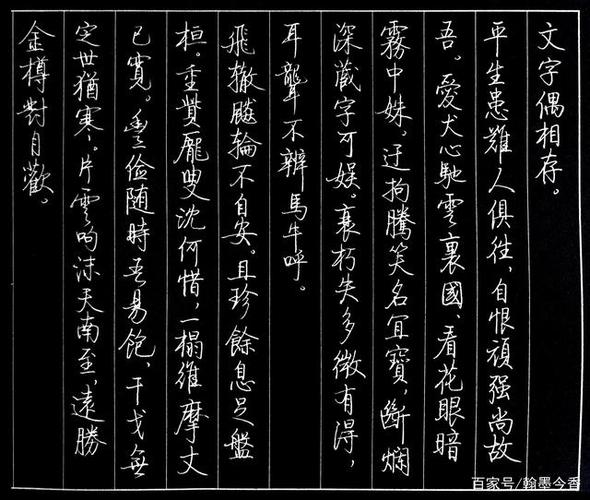 文字偶相存。
平生患難人俱往、自恨頑强尚故
吾。愛犬心馳雲裏國、看花眼暗
霧中姝。迂拘騰笑名宜寶，斷爛
深藏字可娱。衰朽失多微有得，
耳聾不辨馬牛呼。
飛轍飈輪不自安。且珍餘息足盤
桓。重覺龐叟沈何惜，一榻維摩丈
已寬。豐儉随時吾易飽、干戈無
定世猶寒。片雲呴沫天南至，遠勝
金樽對月歡。
百家号/翰墨今香